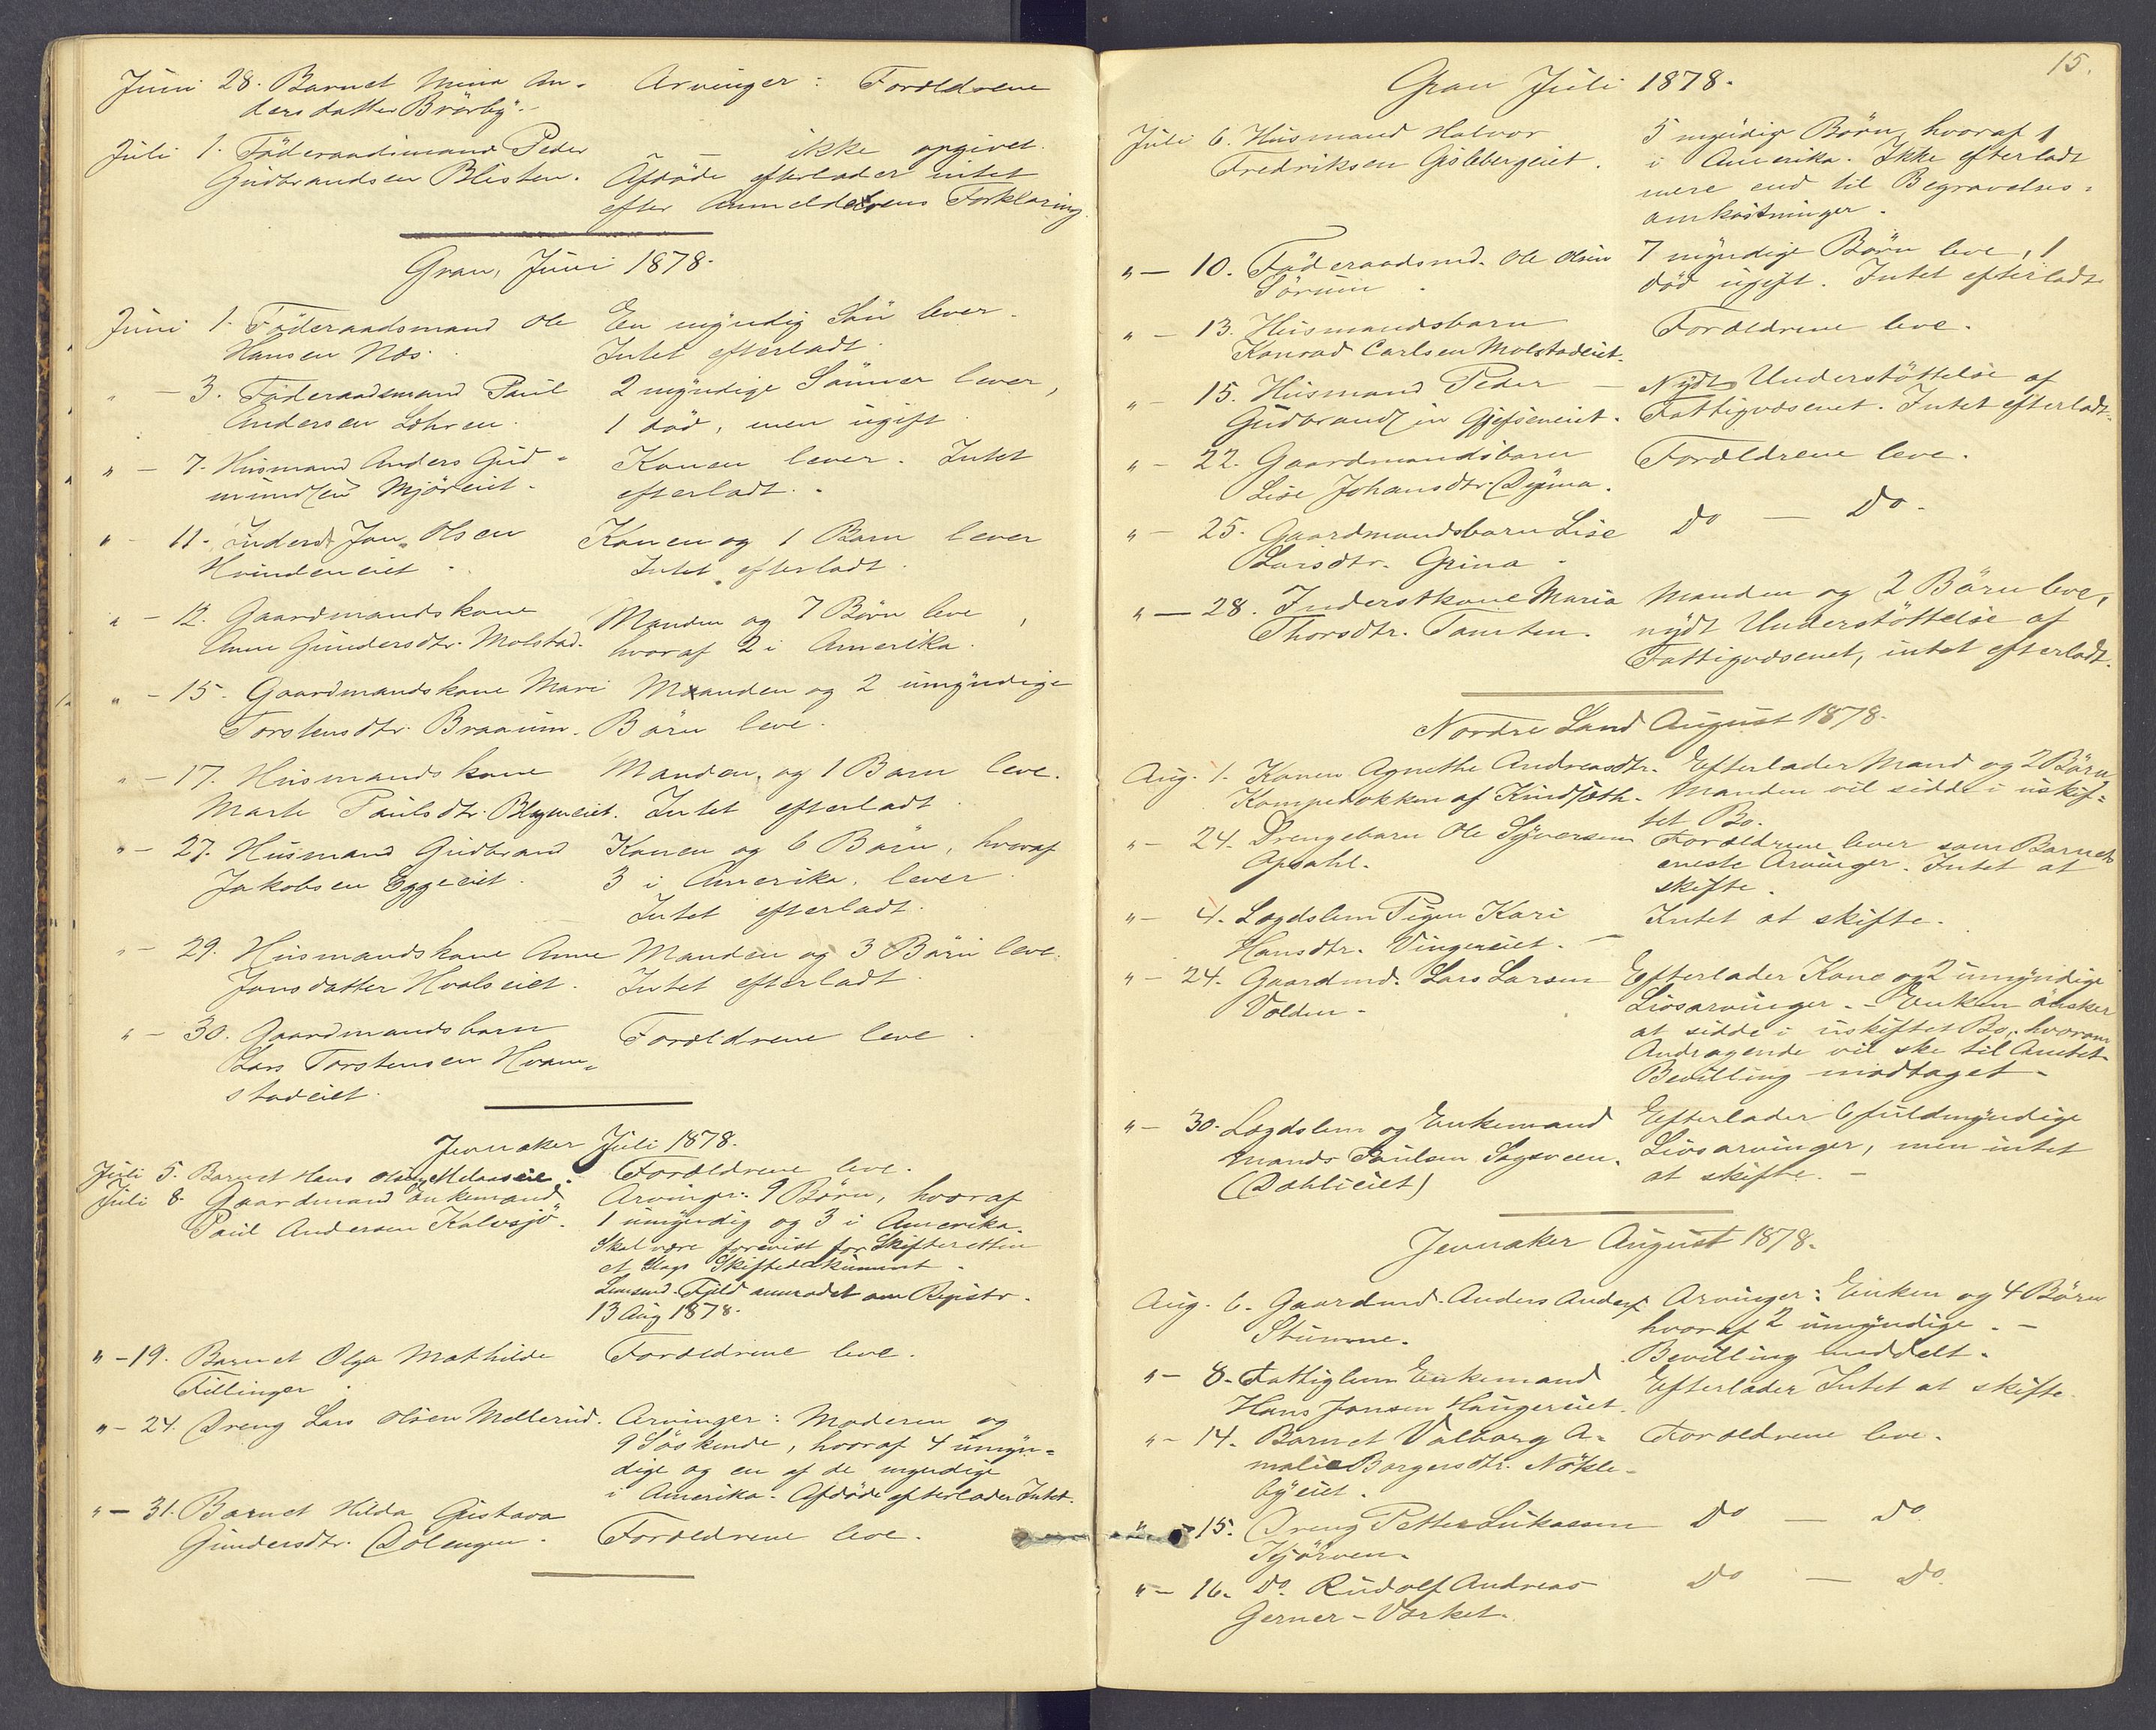 Juni 28. Barnet Mina An- Arvinger: Forældrene
dersdatter Brörby.
Juli 1. Föderaadsmand Peder — ikke opgivet.
Gudbrandsen Blisten. Afdöde efterlader intet
efter Anmelderens Forklaring.
Gran, Juni 1878.
Juni 1. Föderaadsmand Ole En myndig Sön lever.
Hansen Næs. Intet efterladt.
" — 3. Föderaadsmand Paul 2 myndige Sönner lever,
Andersen Löhren. 1 död, men ugift
" — 7. Husmand Anders Gud- Konen lever. Intet
mundsen Mjöreiet. efterladt.
" — 11. Inderst Jon Olsen Konen og 1 Barn lever
Hvindeneiet. Intet efterladt.
" — 12. Gaardmandskone Manden og 7 Börn leve,
Anne Gundersdtr. Molstad. hvoraf 2 i Amerika.
" — 15. Gaardmandskone Mari Manden og 2 umyndige
Torstensdtr. Braaum. Börn leve.
" — 17. Husmandskone Manden og 1 Barn leve.
Marte Paulsdtr. Blegneiet. Intet efterladt.
" — 27. Husmand Gudbrand Konen og 6 Börn, hvoraf
Jakobsen Eggeeiet. 3 i Amerika, lever.
Intet efterladt.
" — 29. Husmandskone Anne Manden og 3 Börn leve.
Jonsdatter Hvalseiet. Intet efterladt.
" — 30. Gaardmandsbarn Forældrene leve.
Lars Torstensen Hvam-
stadeiet.
Jevnaker Juli 1878.
Juli 5. Barnet Hans Olsen Forældrene leve.
Juli 8. Gaardmand og Enkemand Arvinger: 9 Börn, hvoraf
Paul Andersen Kalvsjö. 1 umyndig og 3 i Amerika.
Skal være forevist for Skifteretten
et Slags Skiftedokument.
Lensmd. Fjeld anmodet om Registr.
13 Aug 1878.
" — 19. Barnet Olga Mathilde Forældrene leve.
Fillinger.
" — 24. Dreng Lars Olsen Mellerud. Arvinger: Moderen og
9 Söskende, hvoraf 4 umyn-
dige og en af de myndige
i Amerika. Afdöde efterlader Intet.
" — 31. Barnet Hilda Gustava
Gundersdtr. Dölengen. Forældrene leve.
15.
Gran Juli 1878.
Juli 6. Husmand Halvor 5 myndige Börn, hvoraf 1
Fredriksen Gislebergeiet. i Amerika. Ikke efterladt
mere end til Begravelses-
omkostninger.
" — 10. Föderaadsmd. Ole Olsen 7 myndige Börn leve, 1
Sörum. död ugift. Intet efterladt.
" — 13. Husmandsbarn Forældrene leve.
Konrad Carlsen Molstadeiet.
" — 15. Husmand Peder — Nydt Understöttelse af
Gudbrandsen Gjefseneiet. Fattigvæsenet. Intet efterladt.
" — 22. Gaardmandsbarn Forældrene leve.
Lise Johansdtr. Dynna.
" — 25. Gaardmandsbarn Lise Do — Do.
Larsdtr. Grina.
" — 28. Inderstkone Maria Manden og 2 Börn leve,
Thorsdtr. Tomten. nydt Understöttelse af
Fattigvæsenet, intet efterladt.
Nordre Land August 1878.
Aug. 1. Konen Agnethe Andreasdtr. Efterlader Mand og 2 Börn
Kompedokken af Kindseth. Manden vil sidde i uskif-
tet Bo.
" — 24. Drengebarn Ole Syversen Forældrene lever som Barnets
Opsahl. eneste Arvinger. Intet at
skifte.
" — 4. Lægdslem Pigen Kari Intet at skifte.
Hansdtr. Vingereiet. —
" — 24. Gaardmd. Lars Larsen Efterlader Kone og 2 umyndige
Volden. Livsarvinger. — Enken önsker
at sidde i uskiftet Bo, hvorom
Andragende vil ske til Amtet.
Bevilling modtaget.
" — 30. Lægdslem og Enkemand Efterlader 6 fuldmyndige
Mands Paulsen Sagveen. Livsarvinger, men intet
(Dahlieiet) at skifte. —
Jevnaker August 1878.
Aug. 6. Gaardmd. Anders Anders. Arvinger: Enken og 4 Börn
Stumne. hvoraf 2 umyndige. —
Bevilling meddelt.
" — 8. Fattiglem Enkemand Efterlader Intet at skifte.
Hans Jonsen Haugereiet.
" — 14. Barnet Valborg A- Forældrene leve.
malie Borgersdtr. Nökle-
byeiet.
" — 15. Dreng Petter Lukassen Do — Do
Kjörven.
" — 16. Do. Rudolf Andreas Do — Do.
Gerner - Værket.